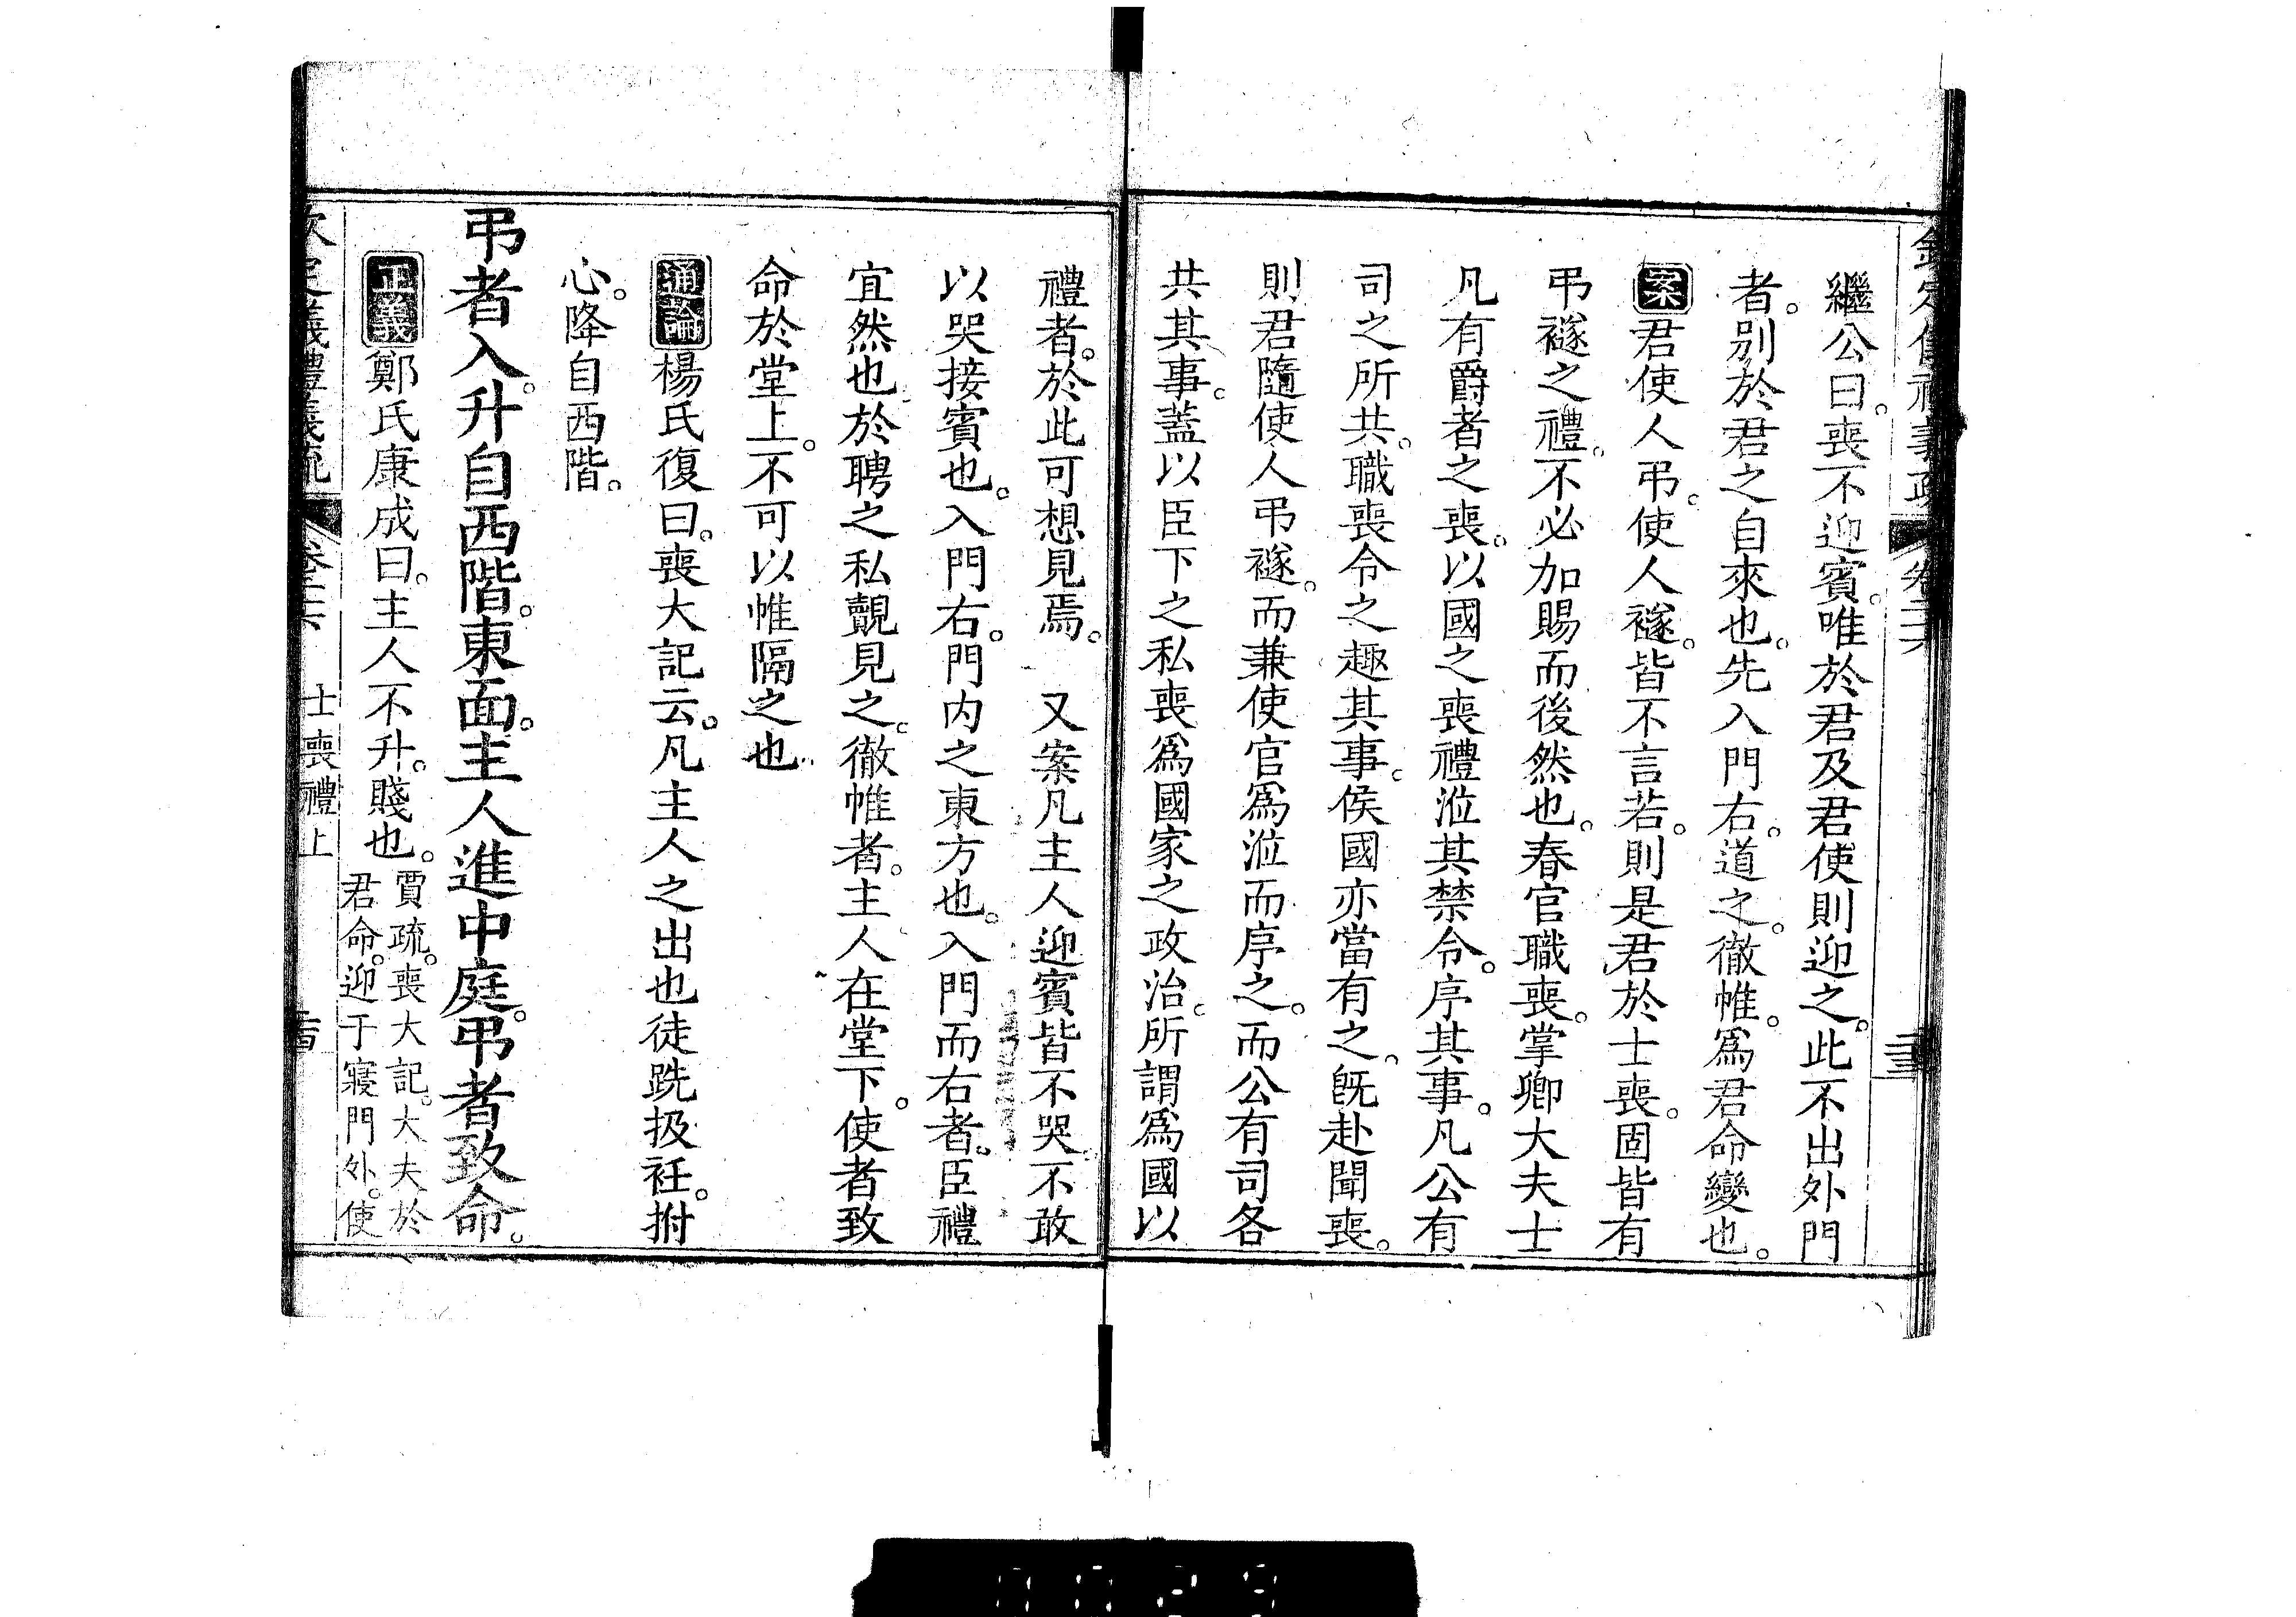 繼公曰。喪不迎賓。唯於君及君使則迎之。此不出外門
者。别於君之自來也。先入門右。道之。徹帷。爲君命變也。
案君使人弔。使人襚。皆不言若。則是君於士喪。固皆有
弔襚之禮。不必加賜而後然也。春官職喪。掌卿大夫士
凡有爵者之喪。以國之喪禮涖其禁令。序其事。凡公有
司之所共。職喪令之趣其事。侯國亦當有之。旣赴聞喪。
則君隨使人弔襚。而兼使官爲涖而序之。而公有司各
共其事。蓋以臣下之私喪爲國家之政治。所謂爲國以
禮者。於此可想見焉。　又案凡主人迎賓皆不哭。不敢
以哭接賓也。入門右。門内之東方也。入門而右者。臣禮
宜然也。於聘之私覿見之。徹帷者。主人在堂下。使者致
命於堂上。不可以帷隔之也。
通論楊氏復曰。喪大記云。凡主人之出也徒跣扱衽。拊
心。降自西階。
弔者入。升自西階。東面。主人進中庭。弔者致命。
正義鄭氏康成曰。主人不升。賤也。賈疏。喪大記。大夫於
君命。迎于寢門外。使
欽定義禮義疏　卷二十六　士喪禮上